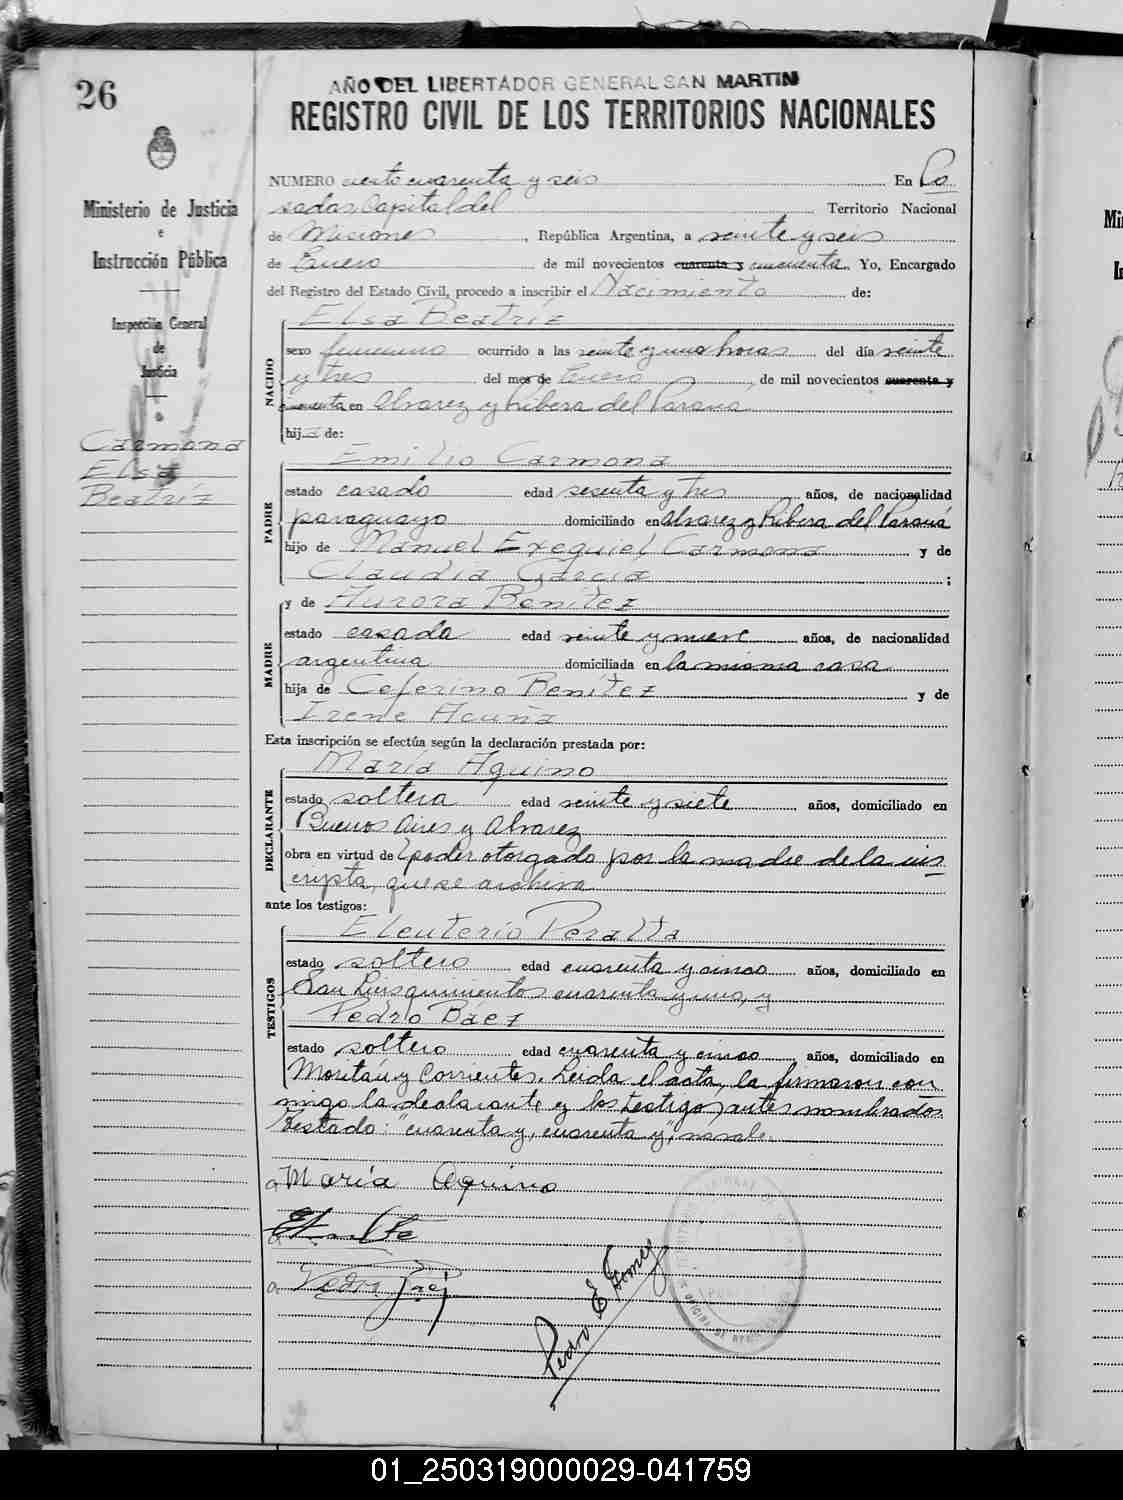 26
AÑO DEL LIBERTADOR GENERAL SAN MARTIN
REGISTRO CIVIL DE LOS TERRITORIOS NACIONALES
Ministerio de Justicia
e
Instrucción Pública
Inspección General
de
Justicia
Carmona
Elsa
Beatríz
NUMERO ciento cuarenta y seis En Po
sadas Capital del Territorio Nacional
de Misiones, República Argentina, a veinte y seis
de Enero de mil novecientos cuarenta y cincuenta. Yo, Encargado
del Registro del Estado Civil, procedo a inscribir el Nacimiento de:
NACIDO
Elsa Beatríz
sexo femenino ocurrido a las veinte y una horas del día veinte
y tres del mes de Enero, de mil novecientos cuarenta y
cincuenta en Alvarez y Ribera del Paraná
hija de:
PADRE
Emilio Carmona
estado casado edad sesenta y tres años, de nacionalidad
paraguayo domiciliado en Alvarez y Ribera del Paraná
hijo de Manuel Exequiel Carmona y de
Claudia García;
MADRE
y de Aurora Benítez
estado casada edad veinte y nueve años, de nacionalidad
argentina domiciliada en la misma casa
hija de Ceferino Benítez y de
Irene Acuña
Esta inscripción se efectúa según la declaración prestada por:
DECLARANTE
María Aquino
estado soltera edad veinte y siete años, domiciliado en
Buenos Aires y Alvarez
obra en virtud de poder otorgado por la madre de la ins
cripta, que se archiva
ante los testigos:
TESTIGOS
Eleuterio Peralta
estado soltero edad cuarenta y cinco años, domiciliado en
San Luis quinientos cuarenta y uno, y
Pedro Báez
estado soltero edad cuarenta y cinco años, domiciliado en
Moritán y Corrientes. Leida el acta, la firmaron con
migo la declarante y los testigos antes nombrados.
Testado: "cuarenta y, cuarenta y", no vale.
María Aquino
Pedro Báez
Pedro E Gomez
01_250319000029-041759